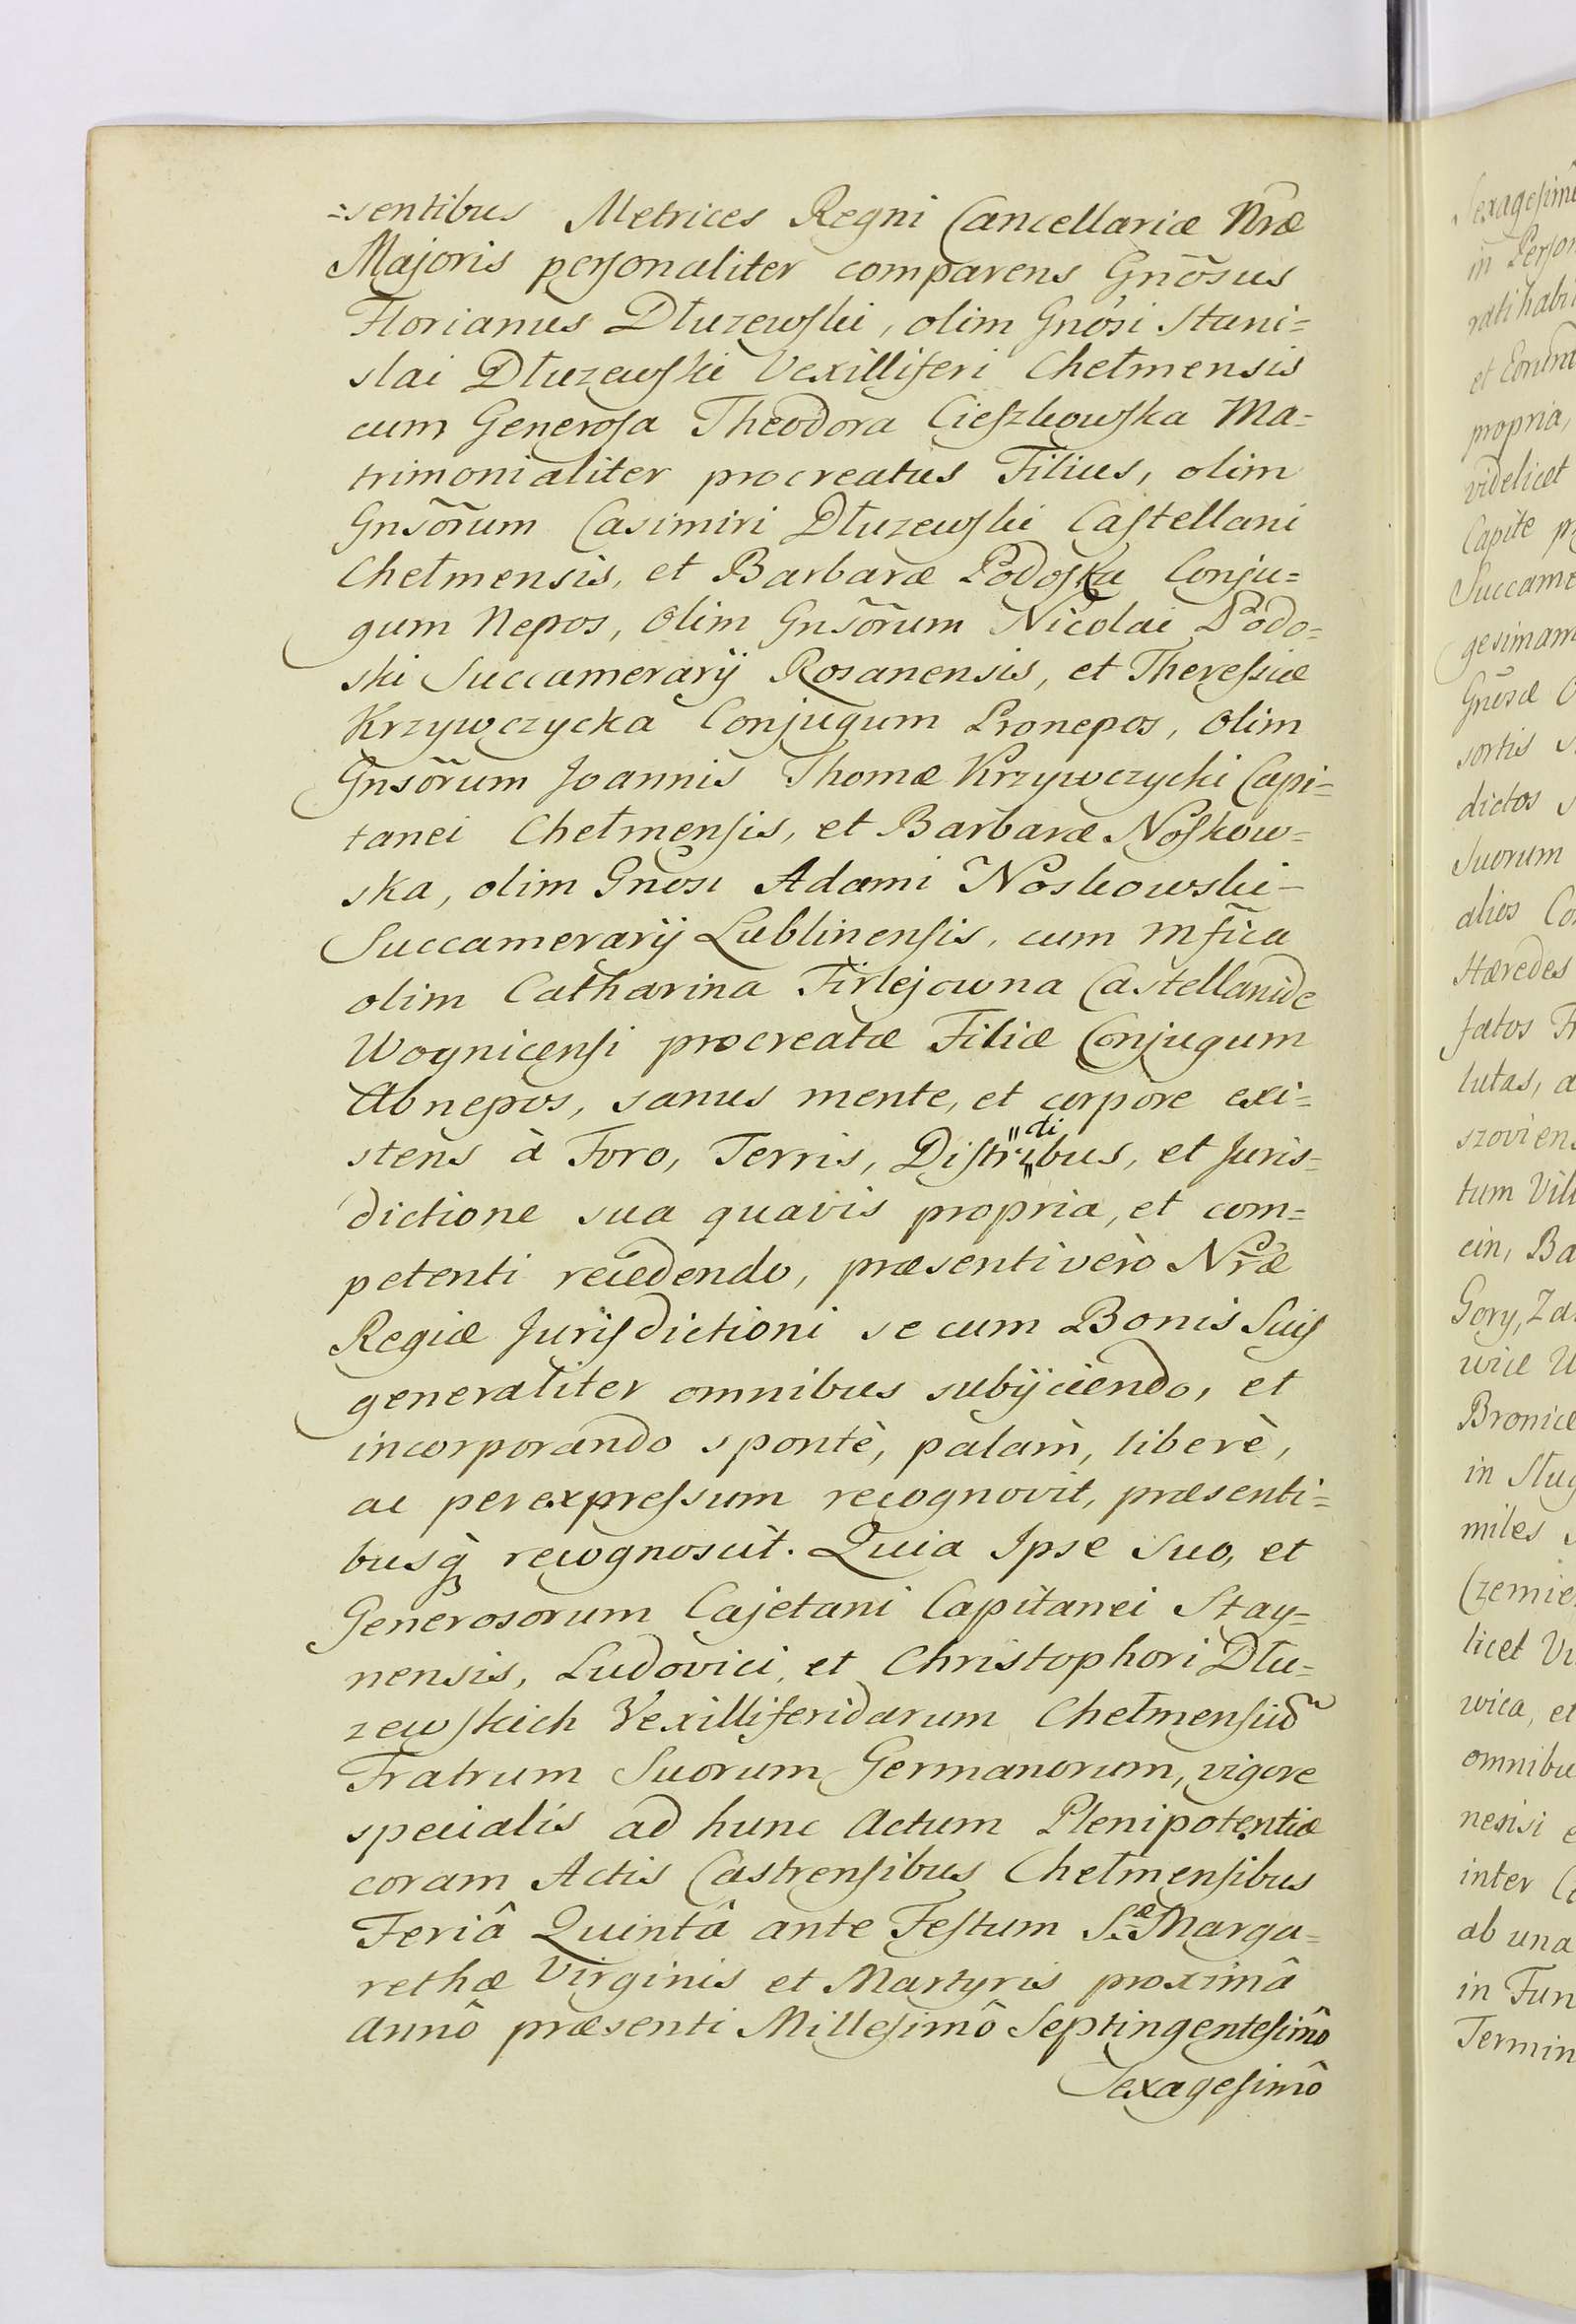 =sentibus Metrices Regni Cancellariæ Nr̃æ
Majoris personaliter comparens Gnõsus
Florianus Dłuzewski, olim Gnõsi Stani=
slai Dłuzewski Vexilliferi Chełmensis
cum Generosa Theodora Cieszkowska Ma=
trimonialiter procreatus Filius, olim
Gnsõrum Casimiri Dłuzewski Castellani
Chełmensis, et Barbaræ Podoska Conju=
gum Nepos, olim Gnsõrum Nicolai Podo=
ski Succamerarij Rosanensis, et Theressiæ
Krzywczycka Conjugum Pronepos, olim
Gnsõrum Joannis Thomæ Krzywczycki Capi=
tanei Chełmensis, et Barbaræ Noskow=
ska, olim Gnõsi Adami Noskowski-
Succamerarij Lublinensis, cum Mfĩca
olim Catharina Firlejowna Castellanide
Woynicensi procreatæ Filiæ Conjugum
Abnepos, sanus mente, et corpore exi=
stens à Foro, Terris, Distri"cti"bus, et Juris=
dictione sua quavis propria, et com=
petenti recedendo, præsenti verò Nr̃æ
Regiæ Jurisdictioni se cum Bonis Suis
generaliter omnibus subijciendo, et
incorporando spontè, palàm, liberè,
ac per expressum recognovit, præsenti=
busq̃ recognoscit. Quia Ipse Suo, et
Generosorum Cajetani Capitanei Stay=
nensis, Ludovici, et Christophori Dłu=
zewskich Vexilliferidarum Chełmensiũ
Fratrum Suorum Germanorum, vigore
specialis ad hunc Actum Plenipotentiæ
coram Actis Castrensibus Chełmensibus
Feriâ Quintâ ante Festum S.æ Marga=
rethæ Virginis et Martyris proximâ
Annô præsenti Millesimô Septingentesimô
Sexagesimô
Sexagesimô
in Person
rati habi
et Eorum
propria,
videlicet
Capite
Succame
gesimam
Gnõsæ
sortis
dictos
Suorum
alios Co
Hæredes
fatos Fr
lutas, a
szoviens
tum Vill
cin, Ba
Gory, Za
wice W
Bronice
in Slug
miles
Czemie
licet Vi
wica, et
omnibu
nensi e
inter C
ab una
in Fun
Termin